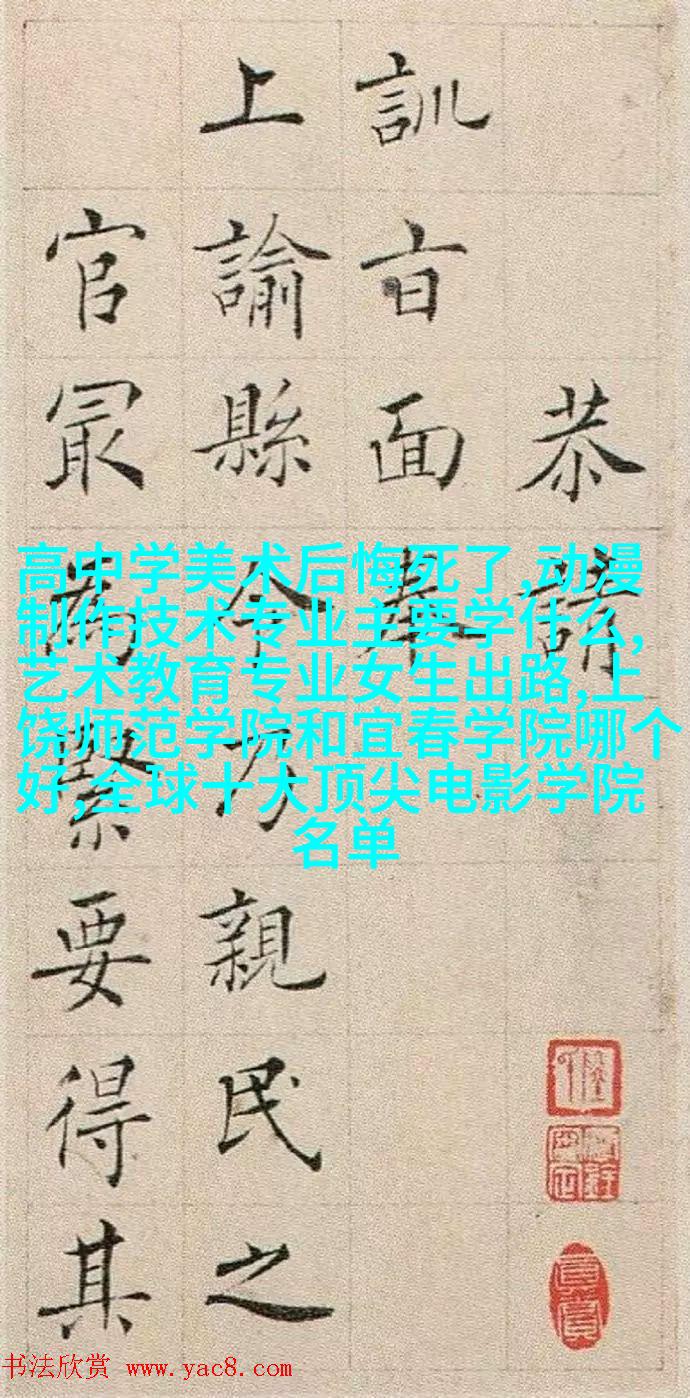 恭請
訓㫖面奉
上諭縣令乃親民之
官冣為緊要得其
高中学美术后悔死了,动漫
制作技术专业主要学什么,
艺术教育专业女生出路,上
饶师范学院和宜春学院哪个
好,全球十大顶尖电影学院
名单
书法欣赏 www.yac8.com